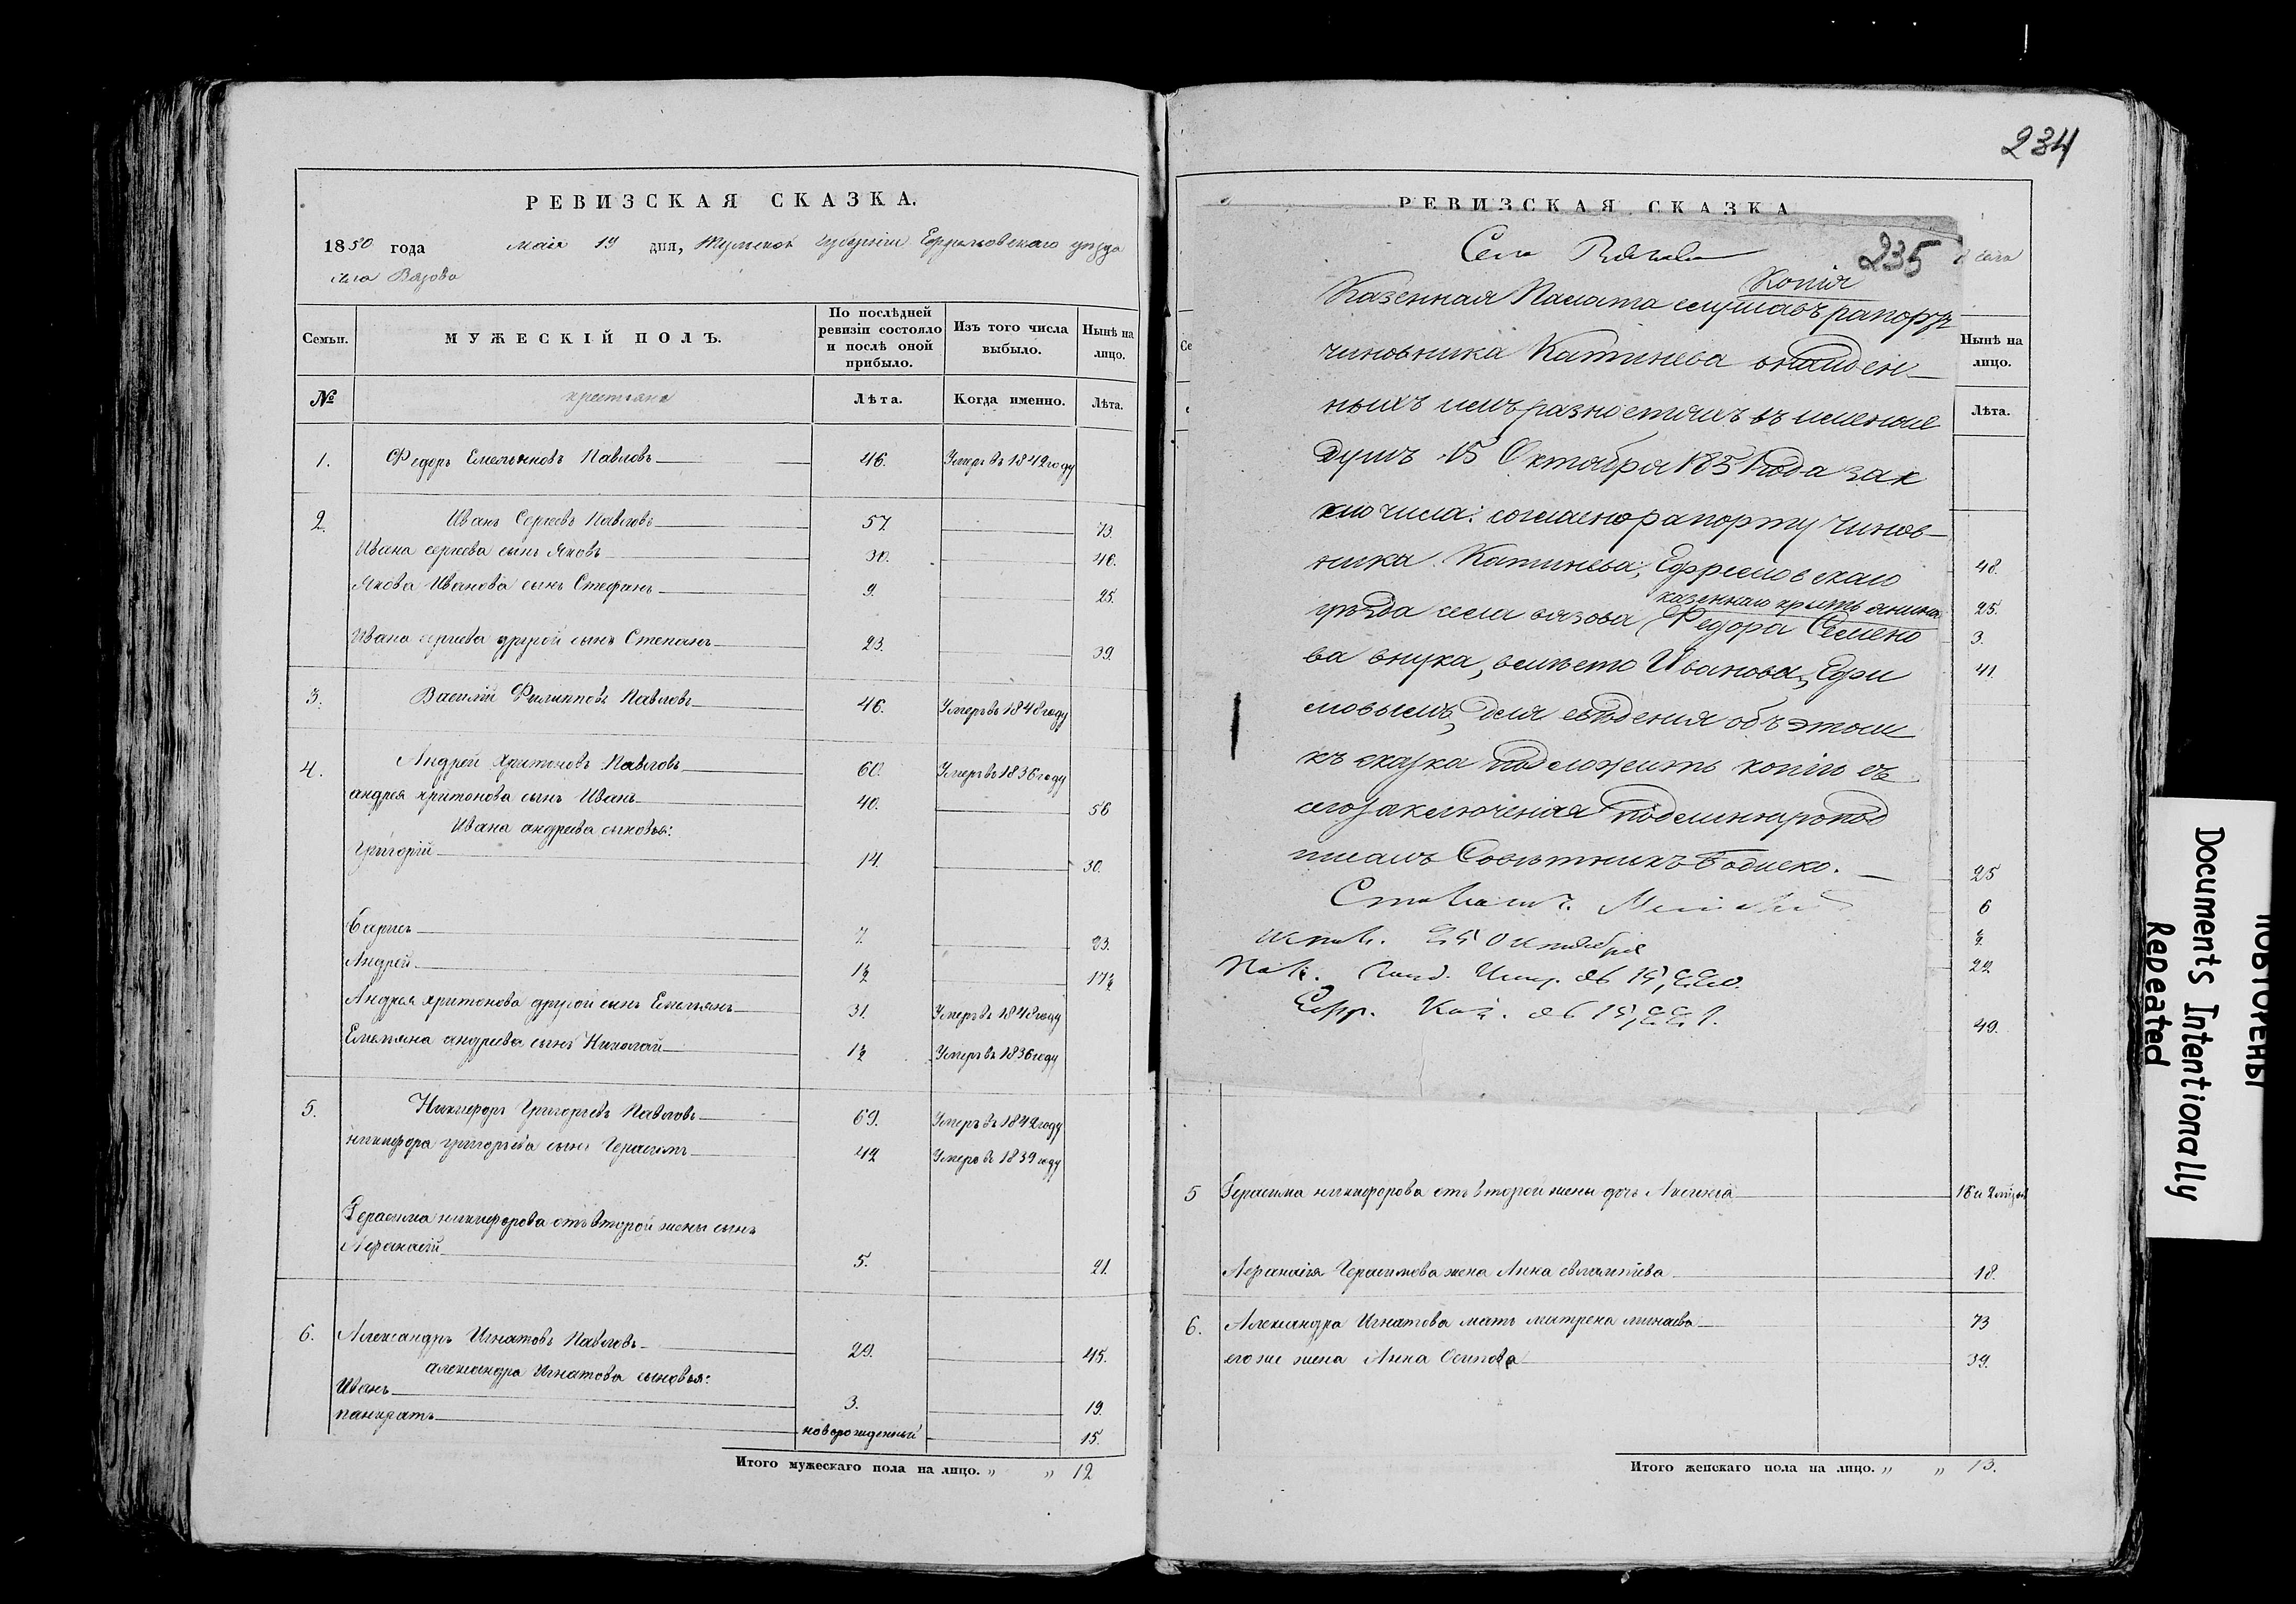 234
РЕВИЗСКАЯ СКАЗКА.
1850 года маія 19 дня, Тульской Губерніи Ефремовскаго уѣзда
села Вязова
Семьи.
МУЖЕСКІЙ ПОЛЪ.
По послѣдней ревизіи состояло и послѣ оной прибыло.
Изъ того числа выбыло.
Нынѣ на лицо.
№
крестьяне
Лѣта.
Когда именно.
Лѣта.
1. Федоръ Емельяновъ Павловъ 46. Умеръ въ 1842 году
2. Иванъ Сергеевъ Павловъ 57. 73.
Ивана сергеева сынъ Яковъ 30. 46.
Якова Иванова сынъ Стефанъ 9. 25.
Ивана сергеева другой сынъ Степанъ 23. 39.
3. Василій Филиповъ Павловъ 46. Умеръ въ 1848 году
4. Андрей Харитоновъ Павловъ 60. Умеръ въ 1836 году
андрея харитонова сынъ Иванъ 40. 56
Ивана андреева сыновья:
Григорій 14. 30.
Борисъ 7. 23.
Андрей 1½ 17½
Андрея харитонова другой сынъ Емельянъ 31. Умеръ въ 1848 году
Емельяна андреева сынъ Николай 1½ Умеръ въ 1836 году
5. Никифоръ Григорьевъ Павловъ 69. Умеръ въ 1842 году
никифора григорьева сынъ Герасимъ 42 Умеръ въ 1839 году
Герасима никифорова отъ второй жены сынъ
Афанасій 5. 21.
6. Александръ Игнатовъ Павловъ 29. 45.
александра Игнатова сыновья:
Иванъ 3. 19.
панкратъ новорожденный 15.
Итого мужескаго пола на лицо. „ „ 12
РЕВИЗСКАЯ СКАЗКА
Село
235
села
Копія
Казенная Палата слушавъ рапортъ
чиновника Катинева о найден-
ныхъ имъ разностяхъ въ именіе
душъ 15 Октября 1851 года зак
ключила: согласно рапорту чинов-
ника Катинева, Ефремовскаго
казеннаго крестьянина
уѣзда села вязова Федора Семено
ва внука, вместо Иванова, Ефи
мовымъ, для сведения объ этом
къ сказка подложить копію съ
сего заключения подлинную под
писалъ Советникъ Бодиско.
25 Октября
Нынѣ на лицо.
Лѣта.
48.
25.
3.
41.
25
6
22
49.
5 Герасима никифорова отъ второй жены дочь Аксинья
Афанасія Герасимова жена Анна евлампіева 18.
6. Александра Игнатова мать матрена минаева 73
его же жена Анна Осипова 39.
Итого женскаго пола на лицо. „ „ 13.
ПОВТОРЕНЫ
Documents Intentionally
Repeated